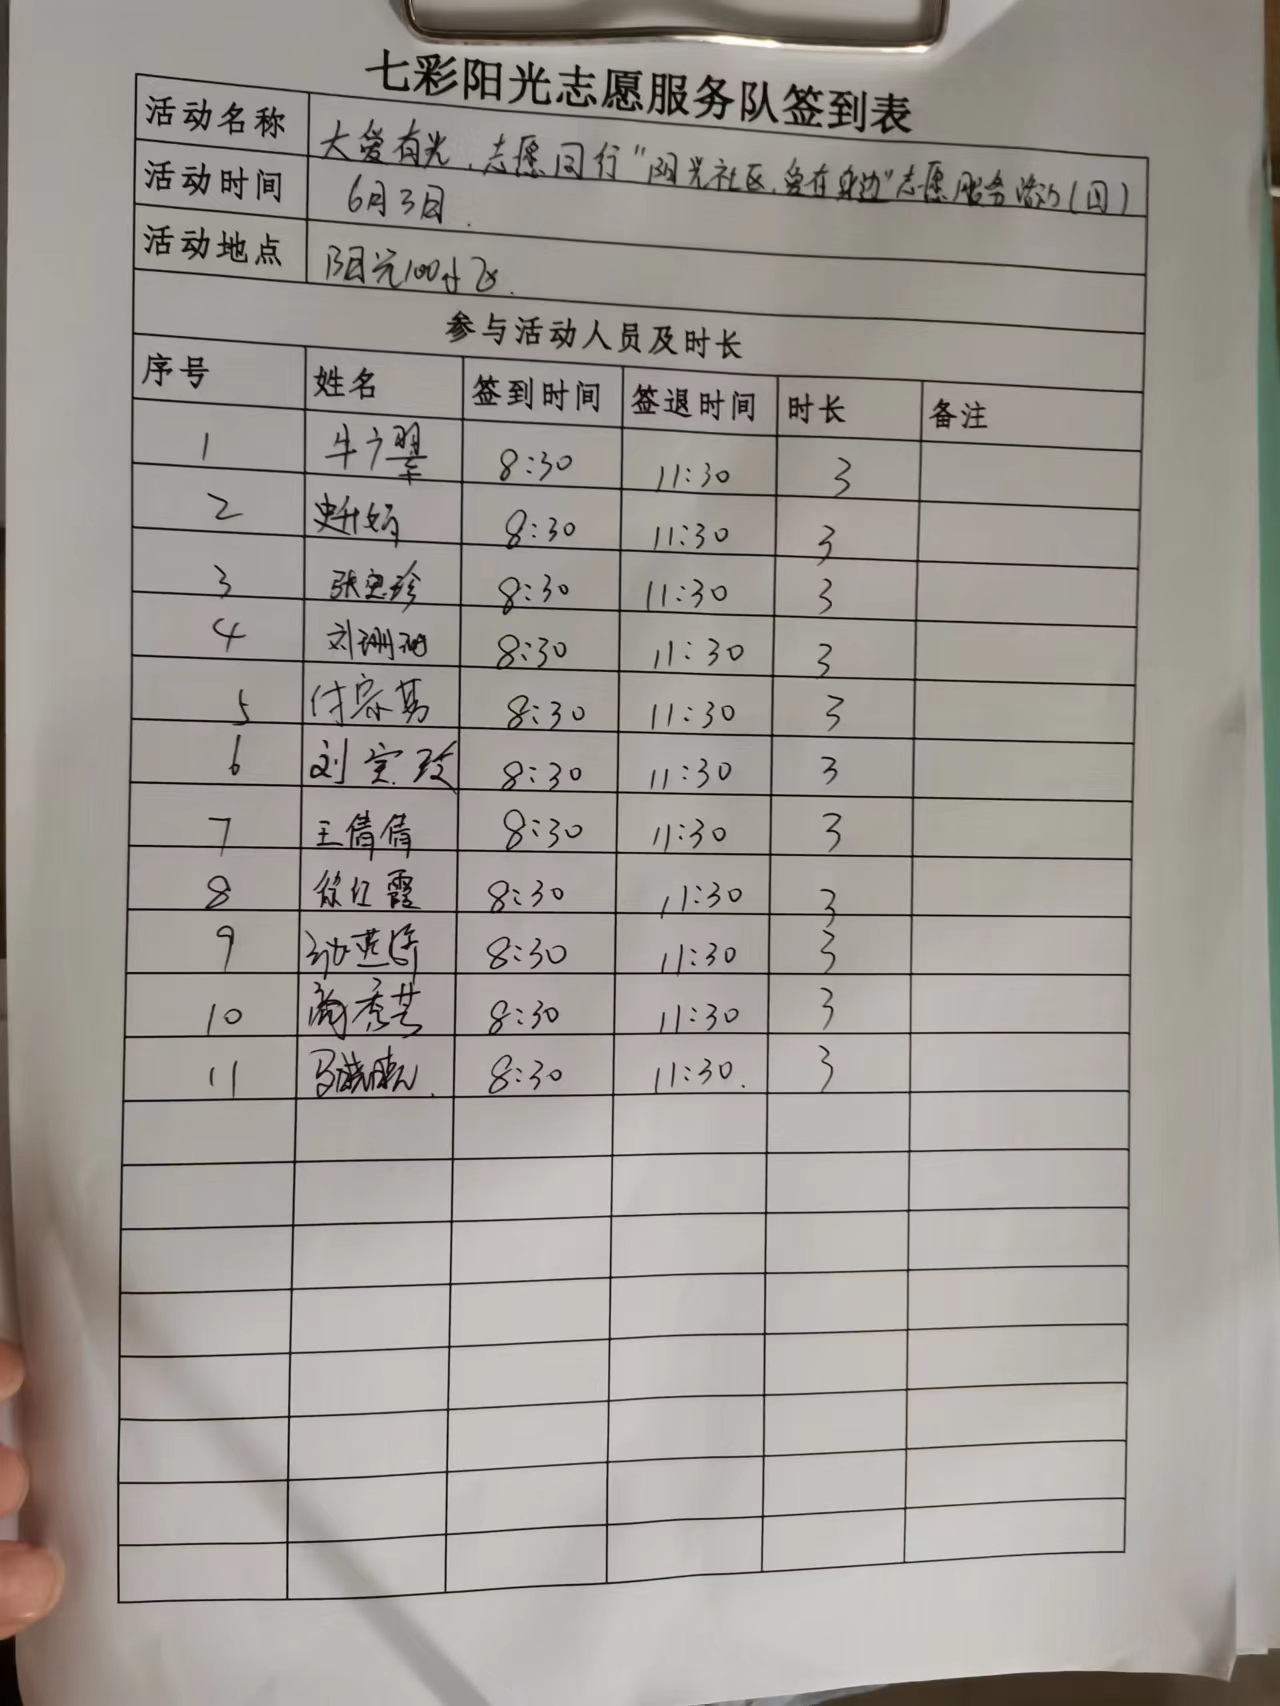 七彩阳光志愿服务队签到表
活动名称 大爱有光，志愿同行"阳光社区，爱在身边"志愿服务活动（四）
活动时间 6月3日.
活动地点 阳光100小区.
参与活动人员及时长
序号 姓名 签到时间 签退时间 时长 备注
1 牛广翠 8:30 11:30 3
2 8:30 11:30 3
3 张宝珍 8:30 11:30 3
4 刘珊珊 8:30 11:30 3
5 付宗 8:30 11:30 3
6 刘宝玫 8:30 11:30 3
7 王倩倩 8:30 11:30 3
8 徐红霞 8:30 11:30 3
9 8:30 11:30 3
10 秀芸 8:30 11:30 3
11 马晓 8:30 11:30. 3